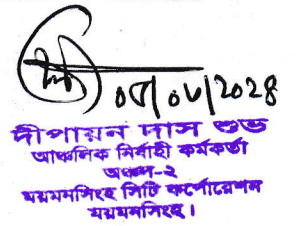 ০৫/০৮/২০২৪
দীপায়ন দাস শুভ
আঞ্চলিক নির্বাহী কর্মকর্তা
অঞ্চল-২
ময়মনসিংহ সিটি কর্পোরেশন
ময়মনসিংহ।